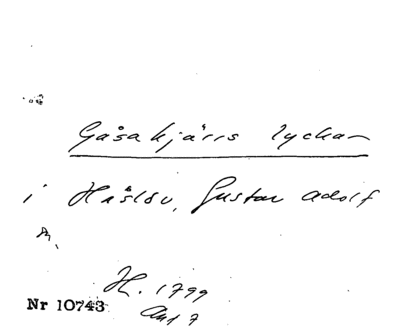 Gåsakjärrs lyckan
i Håslöv, Gustav Adolf
H. 1799
Akt 7
Nr 10743